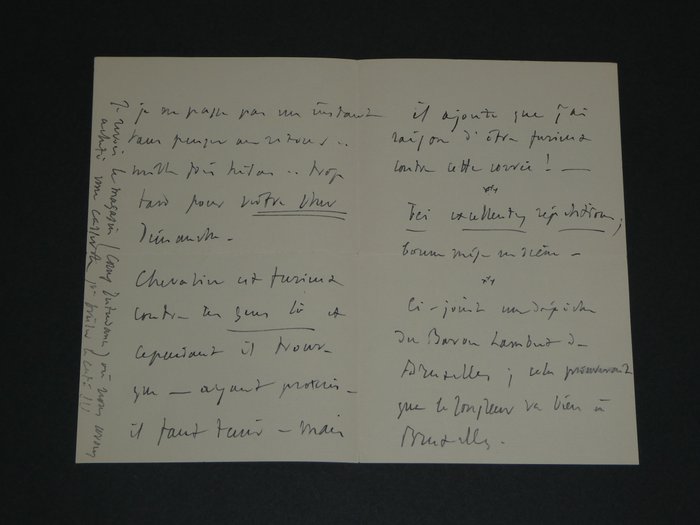 je ne passe pas un instant
sans penser au retour ..
mille fois hélas .. trop
tard pour notre cher
Dimanche.
Chevalier est furieux
contre ces gens là et
cependant il trouve
que — ayant promis —
il faut tenir – mais
il ajoute que j'ai
raison d'être furieux
contre cette corvée ! —
Ici excellentes répétitions ;
bonne mise en scène –
Ci-joint une dépêche
du Baron Lambert de
Bruxelles ; cela
que le Jongleur va bien à
Bruxelles.
Je revois le magasin (Cours Intendance) où nous avons
acheté une casserole pr brûler le café !!!